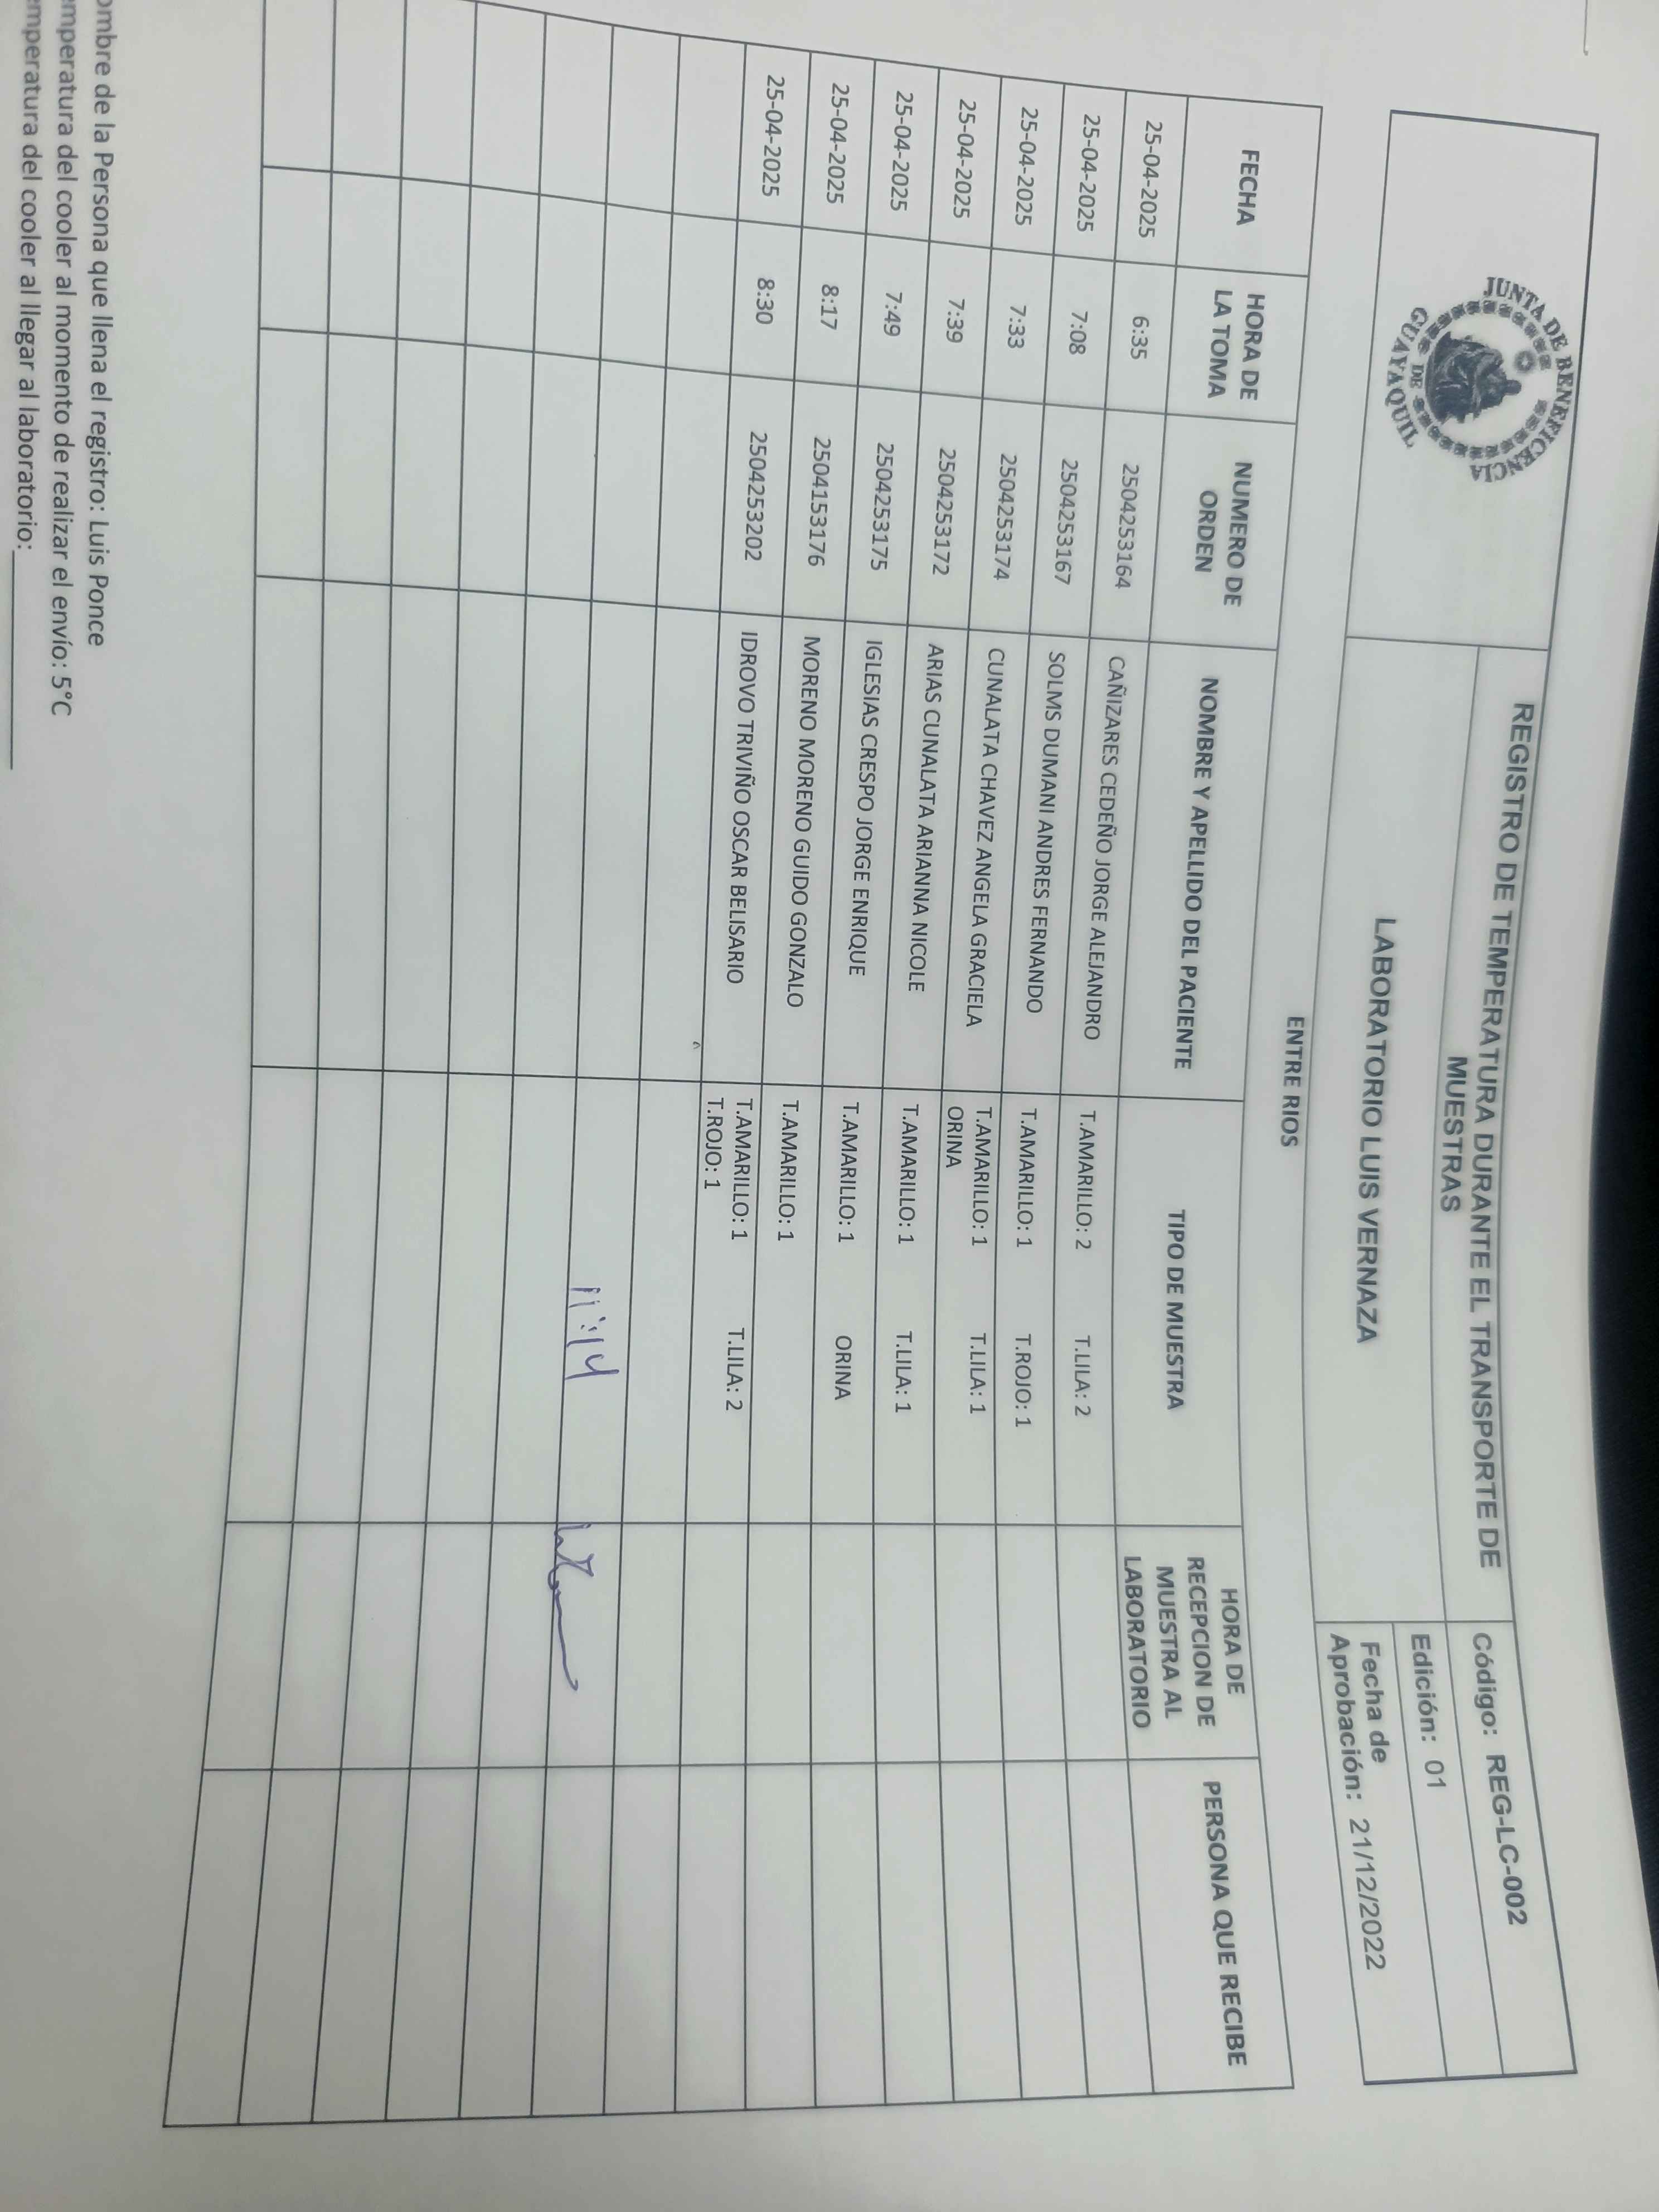 JUNTA DE BENEFICENCIA
DE
GUAYAQUIL
REGISTRO DE TEMPERATURA DURANTE EL TRANSPORTE DE
MUESTRAS
LABORATORIO LUIS VERNAZA
Código: REG-LC-002
Edición: 01
Fecha de
Aprobación: 21/12/2022
ENTRE RIOS
FECHA HORA DE LA TOMA NUMERO DE ORDEN NOMBRE Y APELLIDO DEL PACIENTE TIPO DE MUESTRA HORA DE RECEPCION DE MUESTRA AL LABORATORIO PERSONA QUE RECIBE
25-04-2025 6:35 2504253164 CAÑIZARES CEDEÑO JORGE ALEJANDRO T.AMARILLO: 2 T.LILA: 2
25-04-2025 7:08 2504253167 SOLMS DUMANI ANDRES FERNANDO T.AMARILLO: 1 T.ROJO: 1
25-04-2025 7:33 2504253174 CUNALATA CHAVEZ ANGELA GRACIELA T.AMARILLO: 1 T.LILA: 1
ORINA
25-04-2025 7:39 2504253172 ARIAS CUNALATA ARIANNA NICOLE T.AMARILLO: 1 T.LILA: 1
25-04-2025 7:49 2504253175 IGLESIAS CRESPO JORGE ENRIQUE T.AMARILLO: 1 ORINA
25-04-2025 8:17 2504153176 MORENO MORENO GUIDO GONZALO T.AMARILLO: 1
25-04-2025 8:30 2504253202 IDROVO TRIVIÑO OSCAR BELISARIO T.AMARILLO: 1 T.LILA: 2
T.ROJO: 1
11:14
ombre de la Persona que llena el registro: Luis Ponce
emperatura del cooler al momento de realizar el envío: 5°C
emperatura del cooler al llegar al laboratorio: